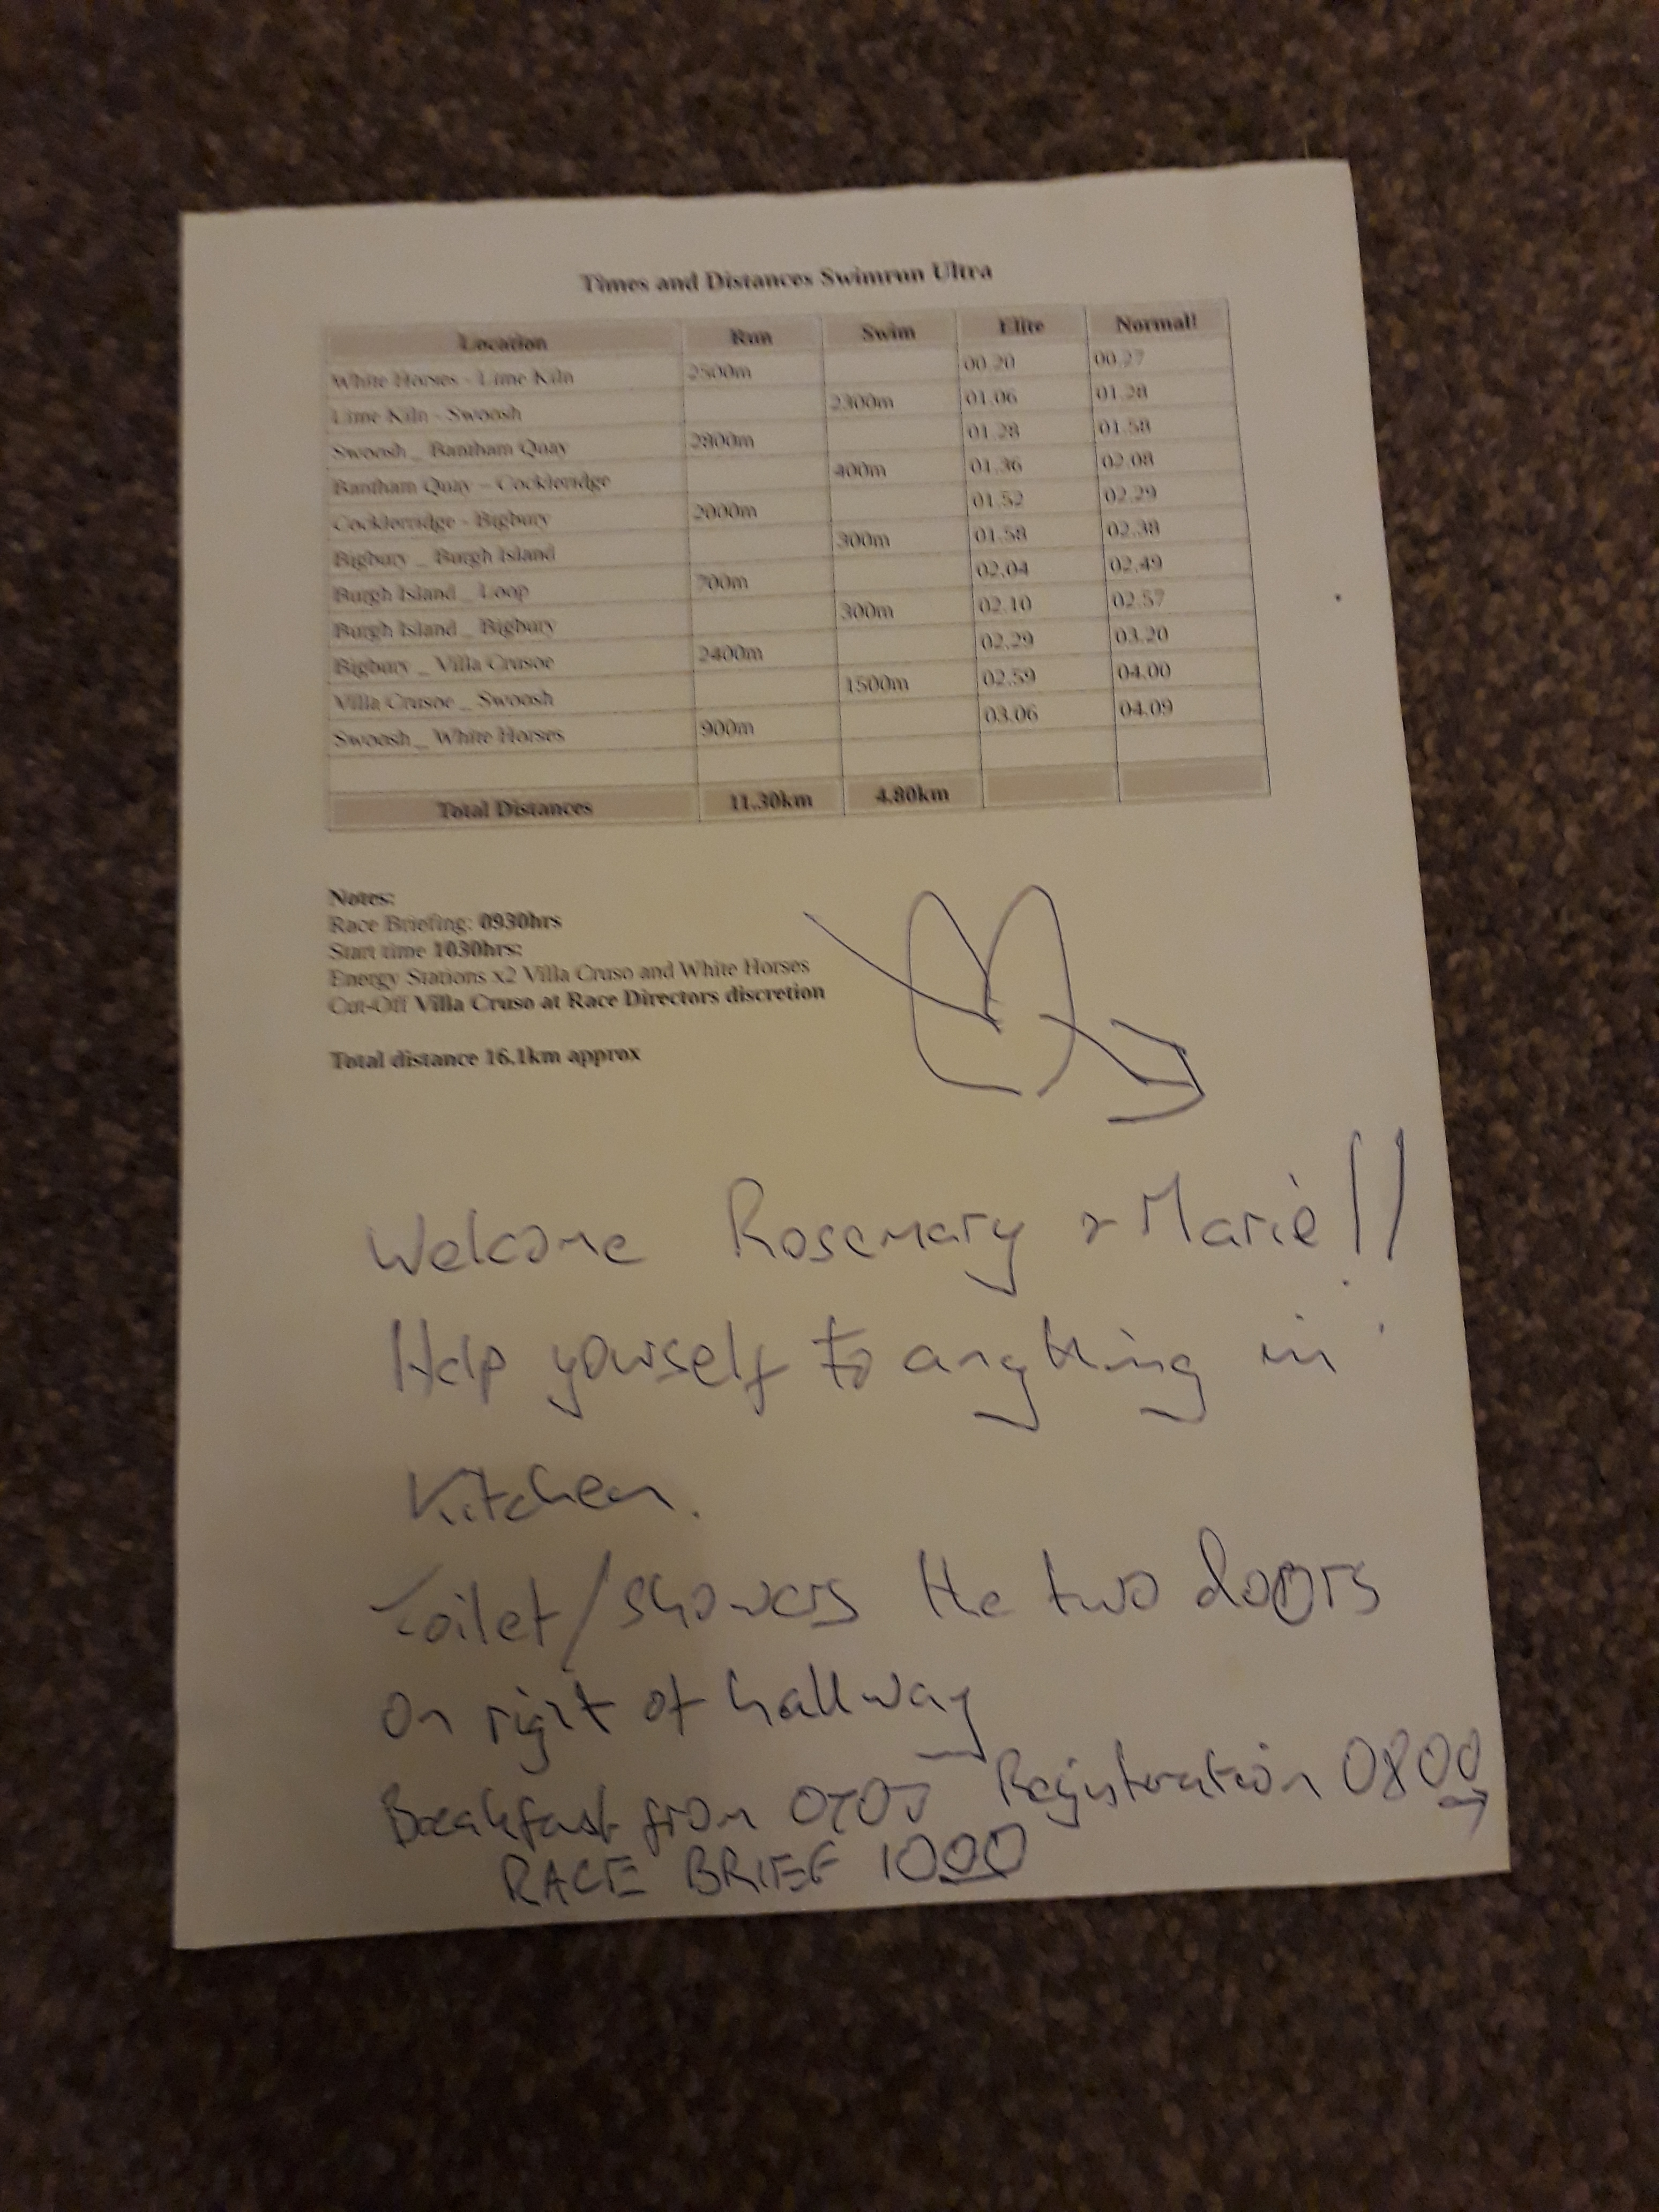 Times and Distances Swimrun Ultra
Location Run Swim Elite Normal!
White Horses - Lime Kiln 2500m 00.20 00.27
Lime Kiln - Swoosh 2300m 01.06 01.28
Swoosh _ Bantham Quay 2800m 01.28 01.58
Bantham Quay - Cockleridge 400m 01.36 02.08
Cocklerridge - Bigbury 2000m 01.52 02.29
Bigbury _ Burgh Island 300m 01.58 02.38
Burgh Island _ Loop 700m 02.04 02.49
Burgh Island _ Bigbury 300m 02.10 02.57
Bigbury _ Villa Crusoe 2400m 02.29 03.20
Villa Crusoe _ Swoosh 1500m 02.59 04.00
Swoosh _ White Horses 900m 03.06 04.09
Total Distances 11.30km 4.80km
Notes:
Race Briefing: 0930hrs
Start time 1030hrs:
Energy Stations x2 Villa Cruso and White Horses
Cut-Off Villa Cruso at Race Directors discretion
Total distance 16.1km approx
Welcome Rosemary & Marie!!
Help yourself to anything in
Kitchen.
Toilet/showers the two doors
on right of hallway
Breakfast from Registeration 0800
RACE BRIEF 1000